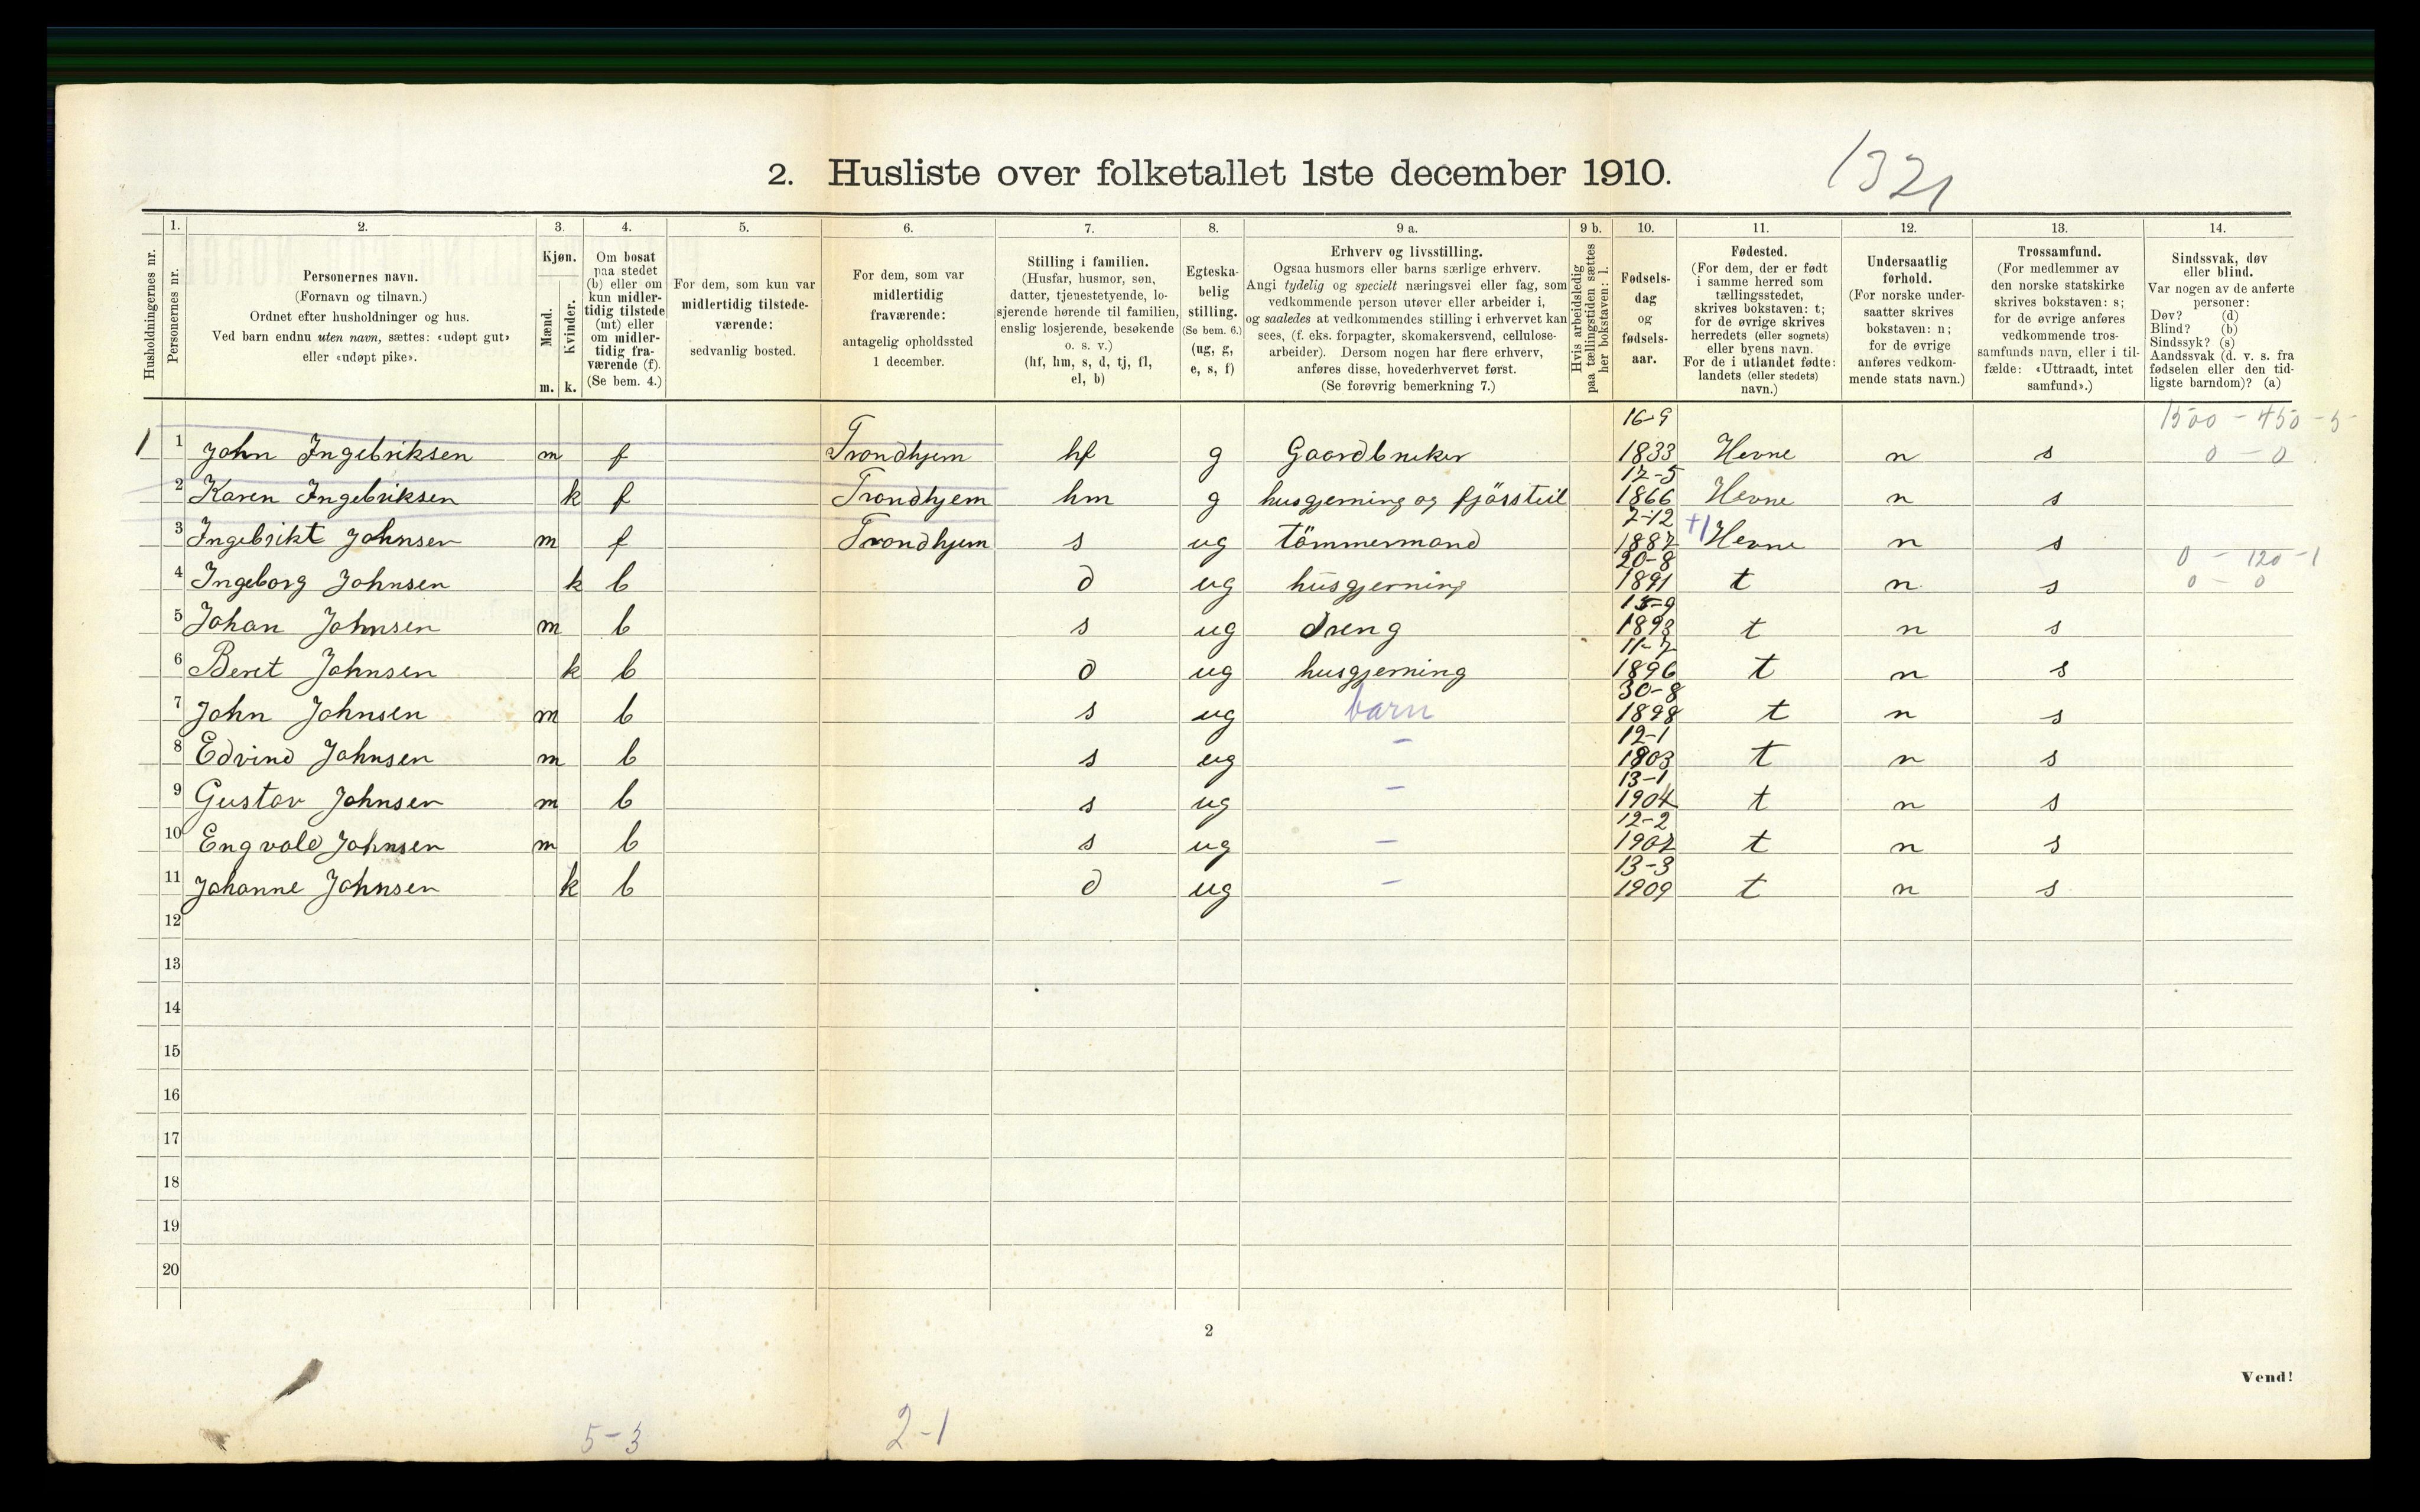 2. Husliste over folketallet 1ste december 1910.
1321
1. 2. 3. 4. 5. 6. 7. 8. 9 a. 9 b. 10. 11. 12. 13. 14.
Husholdningernes nr.
Personernes nr.
Personernes navn.
(Fornavn og tilnavn.)
Ordnet efter husholdninger og hus.
Ved barn endnu uten navn, sættes: «udøpt gut»
eller «udøpt pike».
Kjøn.
Mænd.
Kvinder.
m. k.
Om bosat
paa stedet
(b) eller om
kun midler-
tidig tilstede
(mt) eller
om midler-
tidig fra-
værende (f).
(Se bem. 4.)
For dem, som kun var
midlertidig tilstede-
værende:
sedvanlig bosted.
For dem, som var
midlertidig
fraværende:
antagelig opholdssted
1 december.
Stilling i familien.
(Husfar, husmor, søn,
datter, tjenestetyende, lo-
sjerende hørende til familien,
enslig losjerende, besøkende
o. s. v.)
(hf, hm, s, d, tj, fl,
el, b)
Egteska-
belig
stilling.
(Se bem. 6.)
(ug, g,
e, s, f)
Erhverv og livsstilling.
Ogsaa husmors eller barns særlige erhverv.
Angi tydelig og specielt næringsvei eller fag, som
vedkommende person utøver eller arbeider i,
og saaledes at vedkommendes stilling i erhvervet kan
sees, (f. eks. forpagter, skomakersvend, cellulose-
arbeider). Dersom nogen har flere erhverv,
anføres disse, hovederhvervet først.
(Se forøvrig bemerkning 7.)
Hvis arbeidsledig
paa tællingstiden sættes
her bokstaven: l.
Fødsels-
dag
og
fødsels-
aar.
Fødested.
(For dem, der er født
i samme herred som
tællingsstedet,
skrives bokstaven: t;
for de øvrige skrives
herredets (eller sognets)
eller byens navn.
For de i utlandet fødte:
landets (eller stedets)
navn.)
Undersaatlig
forhold.
(For norske under-
saatter skrives
bokstaven: n;
for de øvrige
anføres vedkom-
mende stats navn.)
Trossamfund.
(For medlemmer av
den norske statskirke
skrives bokstaven: s;
for de øvrige anføres
vedkommende tros-
samfunds navn, eller i til-
fælde: «Uttraadt, intet
samfund».)
Sindssvak, døv
eller blind.
Var nogen av de anførte
personer:
Døv? (d)
Blind? (b)
Sindssyk? (s)
Aandssvak (d. v. s. fra
fødselen eller den tid-
ligste barndom)? (a)
16-9 1500 - 450 - 5
1 1 John Ingebriksen m f Trondhjem hf g Gaardbruker 1833 Hevne n s 0 - 0
17-5
2 Karen Ingebriksen k f Trondhjem hm g husgjerning og fjösstell 1866 Hevne n s
7-12
3 Ingebrikt Johnsen m f Trondhjem s ug tömmermand 1887 Hevne n s
20-8 0 - 120 - 1
4 Ingeborg Johnsen k b d ug husgjerning 1891 t n s 0 - 0
15-9
5 Johan Johnsen m b s ug dreng 1893 t n s
11-7
6 Beret Johnsen k b d ug husgjerning 1896 t n s
30-8
7 John Johnsen m b s ug barn 1898 t n s
12-1
8 Edvind Johnsen m b s ug - 1903 t n s
13-1
9 Gustav Johnsen m b s ug - 1904 t n s
12-2
10 Engvald Johnsen m b s ug - 1907 t n s
13-3
11 Johanne Johnsen k b d ug - 1909 t n s
12
13
14
15
16
17
18
19
20
2
Vend!
5-3 2-1